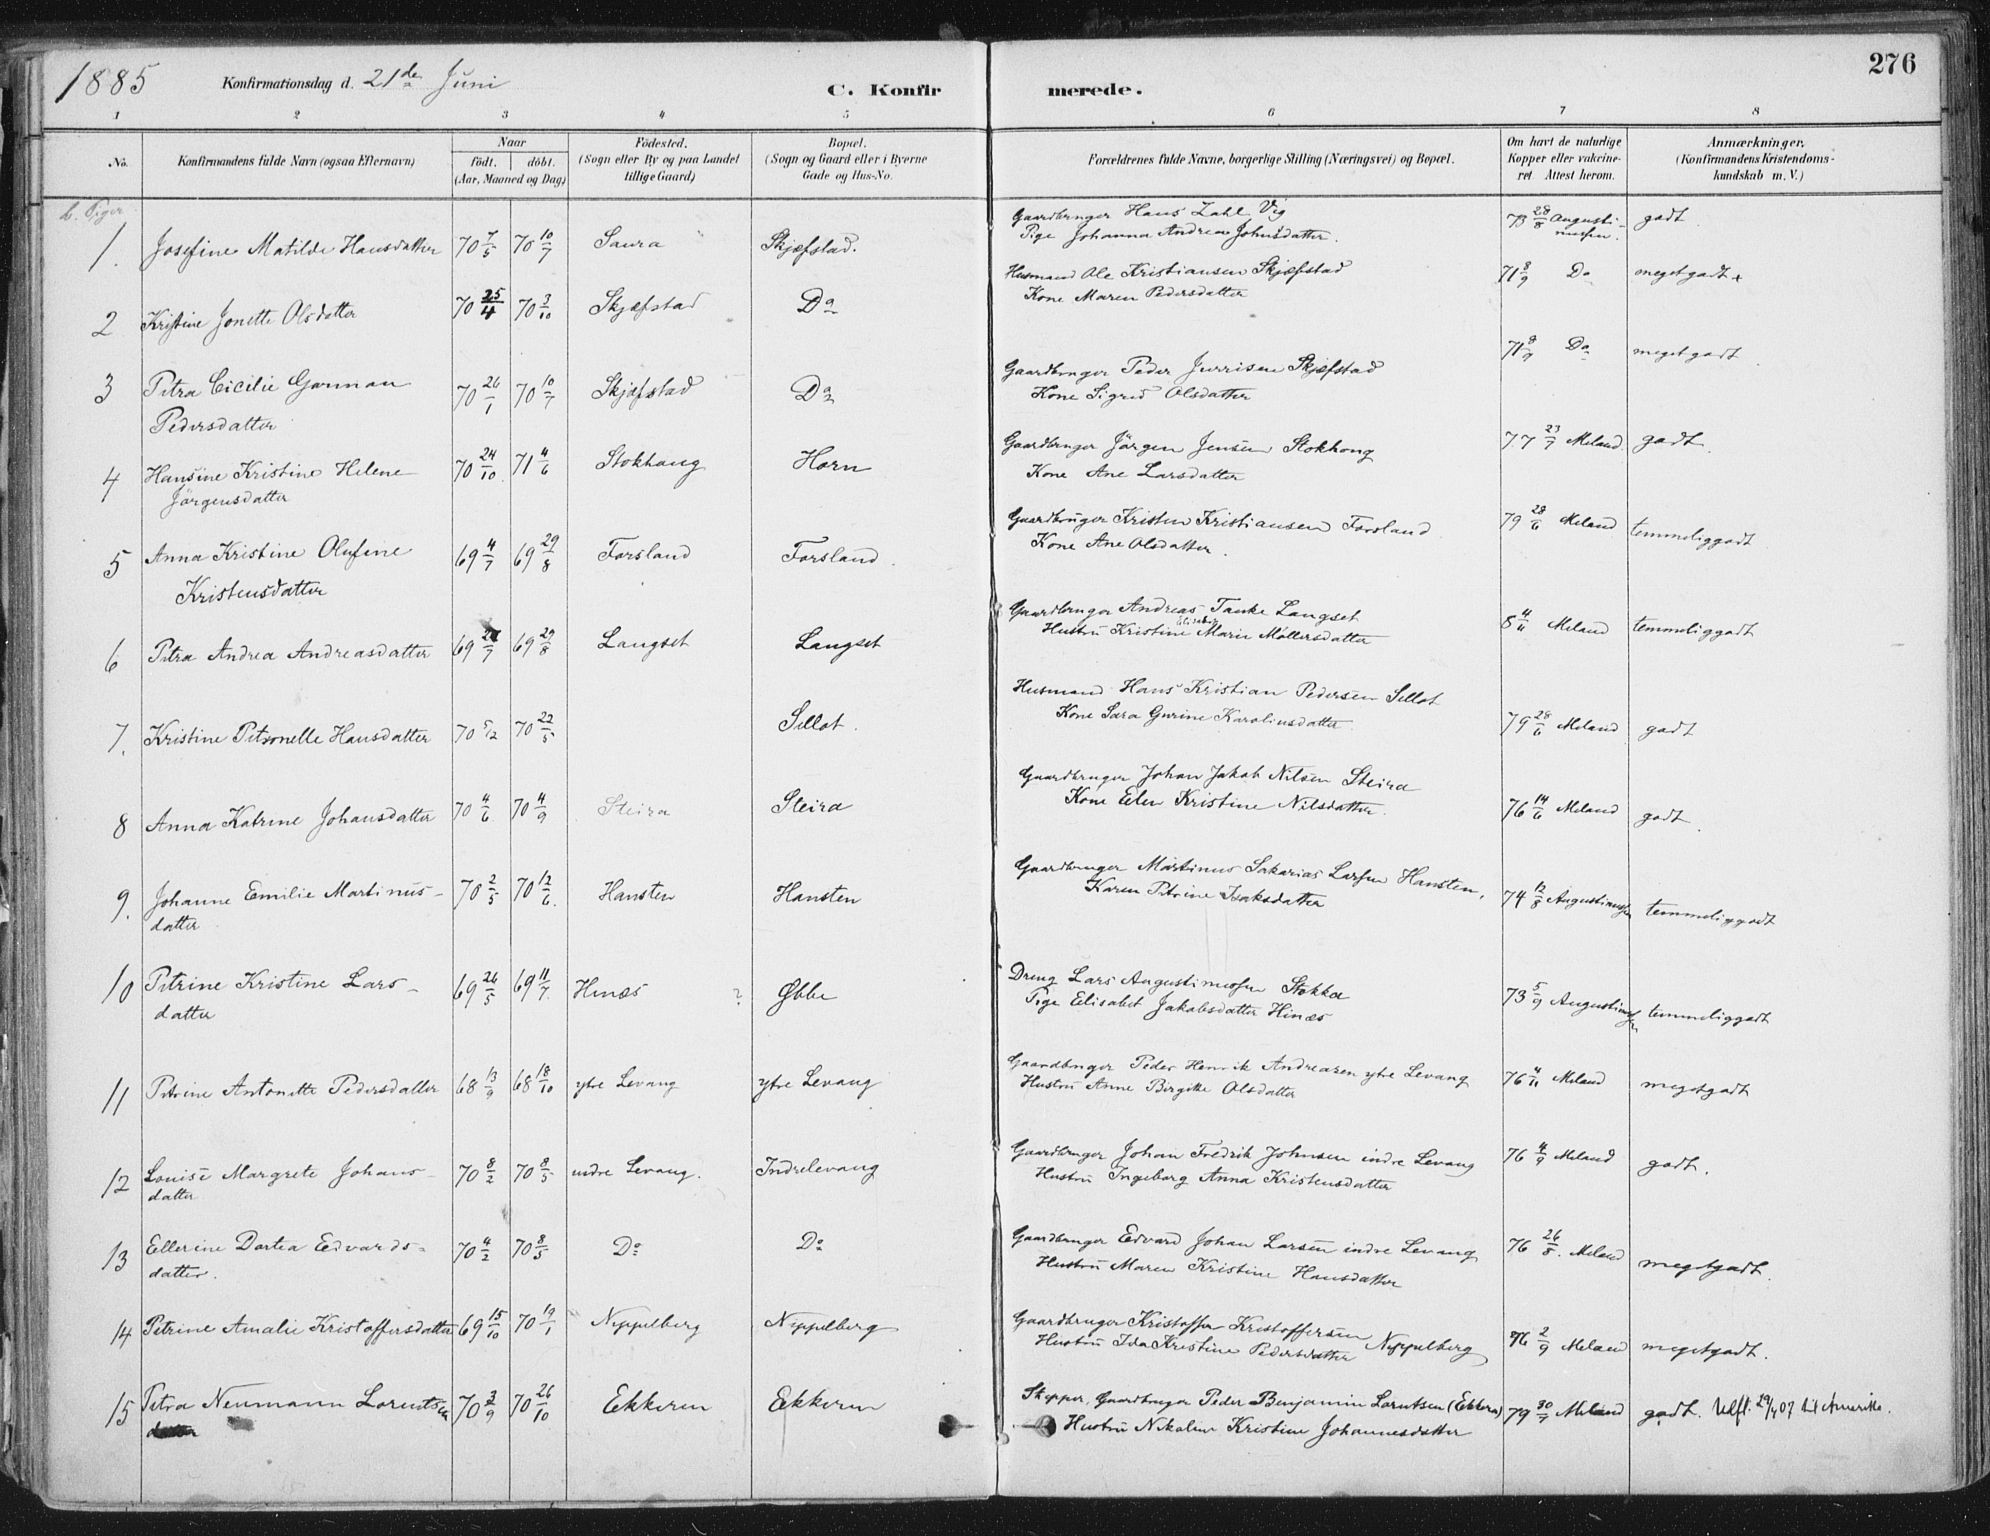 1885 Konfirmationsdag d. 21de Juni C. Konfirmerede. 276
1 2 3 4 5 6 7 8
No. Konfirmandens fulde Navn (ogsaa Efternavn) Naar født. døbt. (Aar, Maaned og Dag) Fødested. (Sogn eller By og paa Landet tillige Gaard) Bopæl. (Sogn og Gaard eller i Byerne Gade og Hus-No. Forældrenes fulde Navne, borgerlige Stilling (Næringsvei) og Bopæl. Om havt de naturlige Kopper eller vakcineret. Attest herom. Anmærkninger. (Konfirmandens Kristendomskundskab m. V.)
b. Piger
1. Josefine Matilde Hansdatter 70 7/5 70 10/7 Saura Skjæfstad. Gaardbruger Hans Zahl Vig 73 28/8 Augustinussen. godt
Pige Johanna Andrea Johnsdatter.
2 Kristine Jonette Olsdatter 70 25/4 70 3/10 Skjæfstad Do Husmand Ole Kristiansen Skjæfstad 71 8/9 Do meget godt +
Kone Maren Pedersdatter
3 Petra Cicilie Garman 70 26/1 70 10/7 Skjæfstad Do Gaardbruger Peder Jurrisen Skjæfstad 71 8/9 Do meget godt
Pedersdatter Kone Sigrid Olsdatter
4 Hansine Kristine Helene 70 24/10 71 4/6 Stokhaug Horn Gaardbruger Jörgen Jensen Stokhong 77 23/7 Meland godt.
Jörgensdatter Kone Ane Larsdatter
5 Anna Kristine Olufine 69 4/7 69 29/8 Forsland Forsland. Gaardbruger Kristen Kristiansen Forsland 79 28/6 Meland temmeliggodt
Kristensdatter Kone Ane Olsdatter.
6 Petra Andrea Andreasdatter 69 /7 69 29/8 Langset Langset Gaardbruger Andreas Tanke Langset 8 4/11 Meland temmeliggodt
Hustru Kristine Marie Möllersdatter
7. Kristine Petronelle Hansdatter 70 5/2 70 22/5 Sellot. Husmand Hans Kristian Pedersen Sellot 79 28/6 Meland godt
Kone Sara Gurine Karoliusdatter.
8 Anna Katrine Johansdatter 70 4/6 70 4/9 Steira Steira Gaardbruger Johan Jakob Nilsen Steira 76 14/6 Meland godt.
Kone Elen Kristine Nilsdatter.
9. Johanne Emilie Martinus- 70 2/5 70 12/6. Hansten Hansten Gaardbruger Martinus Sakarias Larsen Hansten, 74 12/8 Augustinussen temmeliggodt
datter Karen Petrine Isaksdatter
10 Petrine Kristine Lars- 69 26/5 69 11/7. Hinæs ? Øbbe Dreng Lars Augustinussen Stokka 73 5/9 Augustinussen temmeliggodt
datter Pige Elisabet Jakobsdatter Hinæs
11 Petrine Antonette Pedersdatter 68 13/9 68 18/10 ytre Levang ytre Levang Gaardbruger Peder Henrik Andreasen ytre Levang 76 4/11 Meland megetgodt
Hustru Anne Birgitte Olsdatter
12 Louise Margrete Johans- 70 8/2 70 8/5 indre Levang. Indrelevang Gaardbruger Johan Fredrik Johnsen indre Levang 76 4/9 Meland godt.
datter Hustru Ingeborg Anna Kristensdatter
13 Ellerine Dortea Edvards- 70 4/2 70 8/5 Do Do Gaardbruger Edvard Johan Larsen indre Levang 76 26/8. Meland megetgodt.
datter. Hustru Maren Kristine Hansdatter
14 Petrine Amalie Kristoffersdatter 69 15/10 70 19/1 Nippelberg Nippelberg Gaardbruger Kristoffer Kristoffersen Nippelberg 76 2/9 Meland megetgodt.
Hustru Ida Kristine Pedersdatter
15 Petra Neumann Lorntsen 70 3/9 70 26/10 Ekkeren Ekkeren Skipper, Gaardbruger Peder Benjamin Lorntsen (Ekkera) 79 30/7 Meland godt. Udfl. 29/4 07 til Amerika.
datter Hustru Nikoline Kristine Johannesdatter